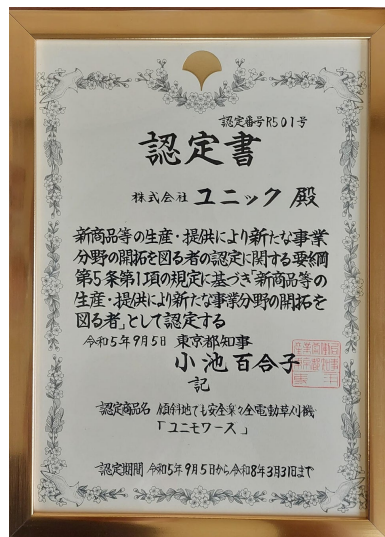 認定番号R501号
認定書
株式会社 ユニック 殿
新商品等の生産・提供により新たな事業
分野の開拓を図る者の認定に関する要綱
第5条第1項の規定に基づき「新商品等の
生産・提供により新たな事業分野の開拓を
図る者」として認定する
令和5年9月5日 東京都知事
小池百合子
記
認定商品名 傾斜地でも安全楽々全電動草刈機
「ユニモワーズ」
認定期間 令和5年9月5日から令和8年3月31日まで